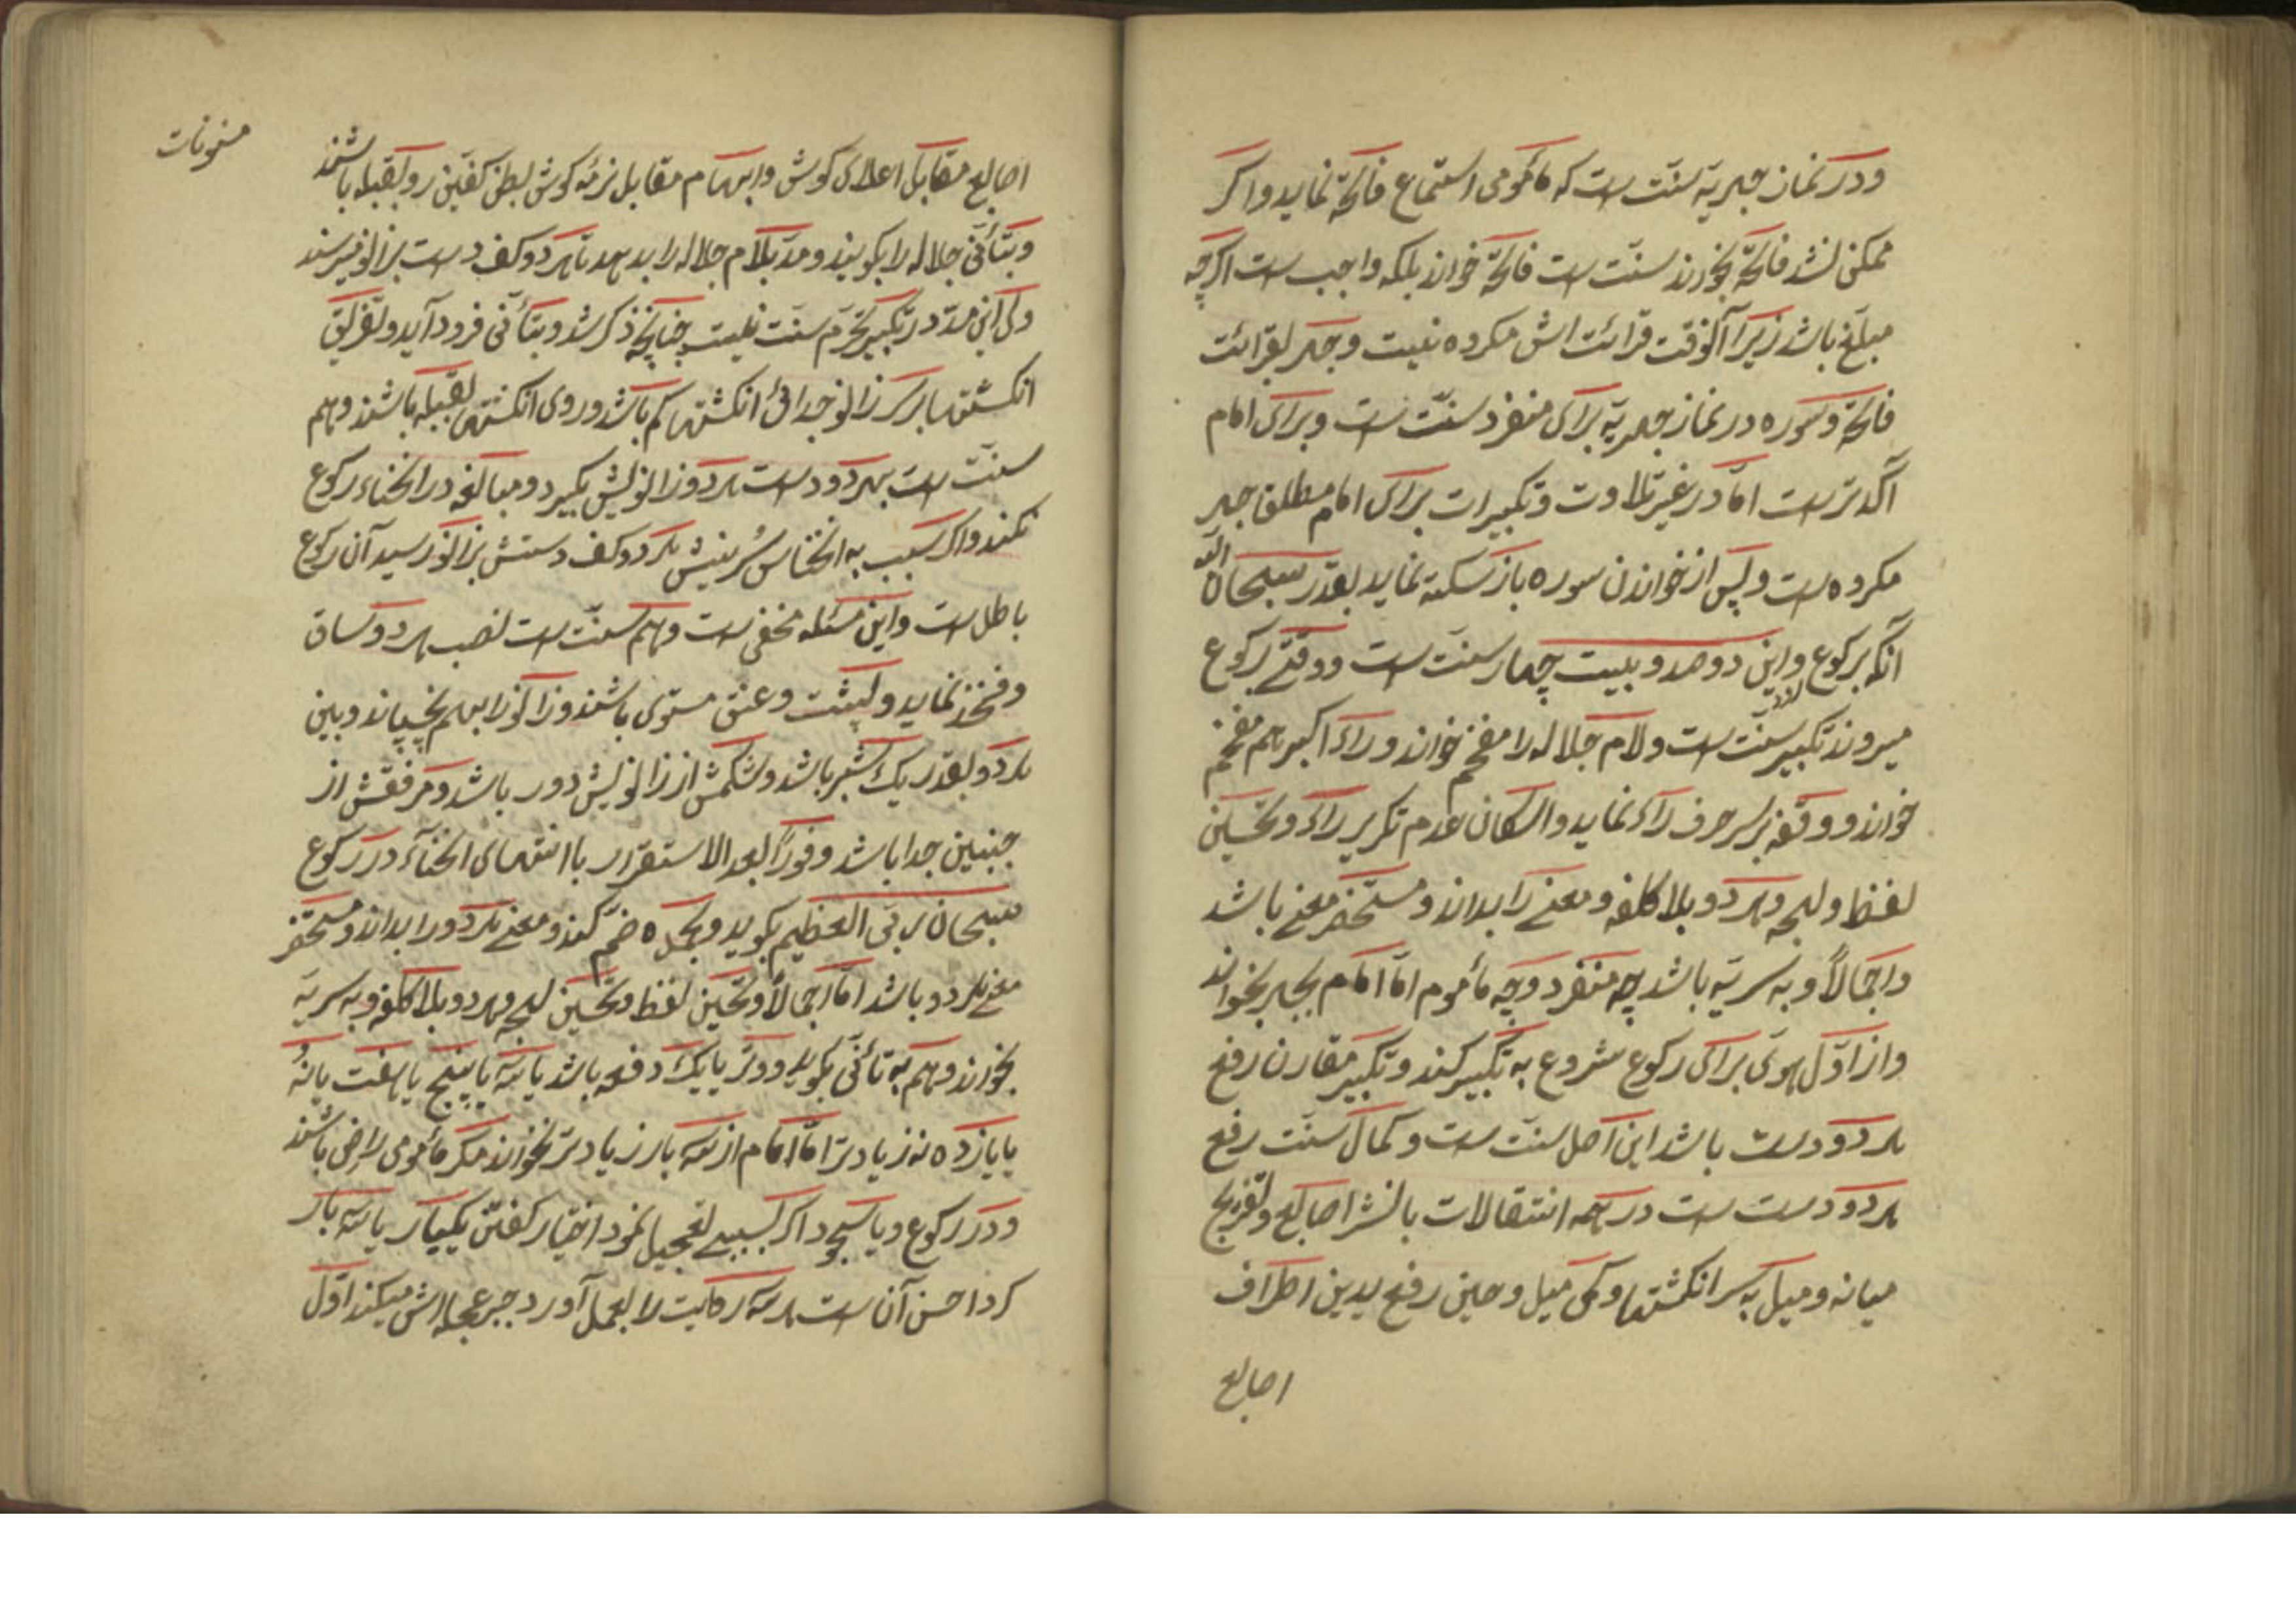 ودر نماز جهریه سنت است که مأمومی استماع فاتحة نماید واکر
ممکن نشد فاتحة بخورند سنّت است فاتحة خواند بلکه واجب است اکرچه
مبلّغ باشد زیرا آنوقت قرائت اش مکروه نیست وجهر بقرائت
فاتحة وسوره در نماز جهریة برای منفرد سنّت است وبرای امام
آکد تر است امّا در غیر تلاوت وتکبیرات برای امام مطلق جهر
مکروه است وپس از خواندن سوره باز سکته نماید بقدر سبحان الله
آنکه برکوع واین دوصد وبیست چهار سنّت است ووقتے برکوع
میروند تکبیر سنّت است ولام جلاله را مفخم خواند وراء اکبر هم مفخم
خواند ووقفه بر سر حرف راء نماید والسکان عدم تکریر راء وتحسین
لفظ ولهجه وهردو بلا کلفه ومعنے را بداند ومستحضر معنے باشد
واجمالاً وبه سریّة باشد چه منفرد وچه مأموم امّا امام بجهر بخواند
واز اوّل هوی برای رکوع شروع به تکبیر کند وتکبیر مقارن رفع
هردو دست باشد این اصل سنّت است وکمال سنّت رفع
هردو دست است در همه انتقالات با نشر اصابع وتفریج
میانه ومیل به سر انکشتها وکمی میل وحین رفع یدین اطراف
اصابع
مسنونات
اصابع مقابل اعلای کوش وابهام مقابل نرمه کوش بطن کفین رو بقبله باشند
وبتأنّی جلاله را بکویند ومدّ بلام جلاله را بدهد تا هردو کف دست بزانو میرسند
ولی این مدّ در تکبیر تحرّم سنّت نیست چنانچه ذکر شد وبتأنّی فرود آید وتفریق
انکشتها بر سر زانو جدائ انکشتها کم باشد وروی انکشتها بقبله باشند وهم
سنّت است بهردو دست هردو زانویش بکیرد ومبالغه در انحناء رکوع
نکند واکر بسبب به انخناس سُرینیش هردو کف دستش بزانو رسید آن رکوع
باطل است واین مسئله مخفی است وهم سنّت است نصب هردو ساق
وفخذ نماید وپشت وعنق مستوی باشند وزانو را بهم نچسپاند وبین
هردو بقدر یک شبر باشد وشکمش از زانویش دور باشد ومرفقش از
جنبین جدا باشد وفوراً بعد الاستقرار با انتهای انحنآء در رکوع
سبحان ربّی العظیم بکوید وبحمده ضمّ کند ومعنے هردو را بداند ومستحضر
معنے هردو باشد امّا اجمالاً وتحسین لفظ وتحسین لهجه وهردو بلا کلفه وبه سریّة
بخواند وهم به تأنّی بکوید ووتر یا یک دفعه باشد یا سه یا پنج یا هفت یا نُه
یا یازده نه زیادتر امّا امام از سه بار زیادتر نخواند مکر مأمومی راضی باشند
ودر رکوع ویا سجود اکر بسببے تعجیل نمود اختیار کفتن یکبار یا سه بار
کرد احسن آن است هر سه رکایت را بعمل آورد جبر عجله اش میکند اوّل